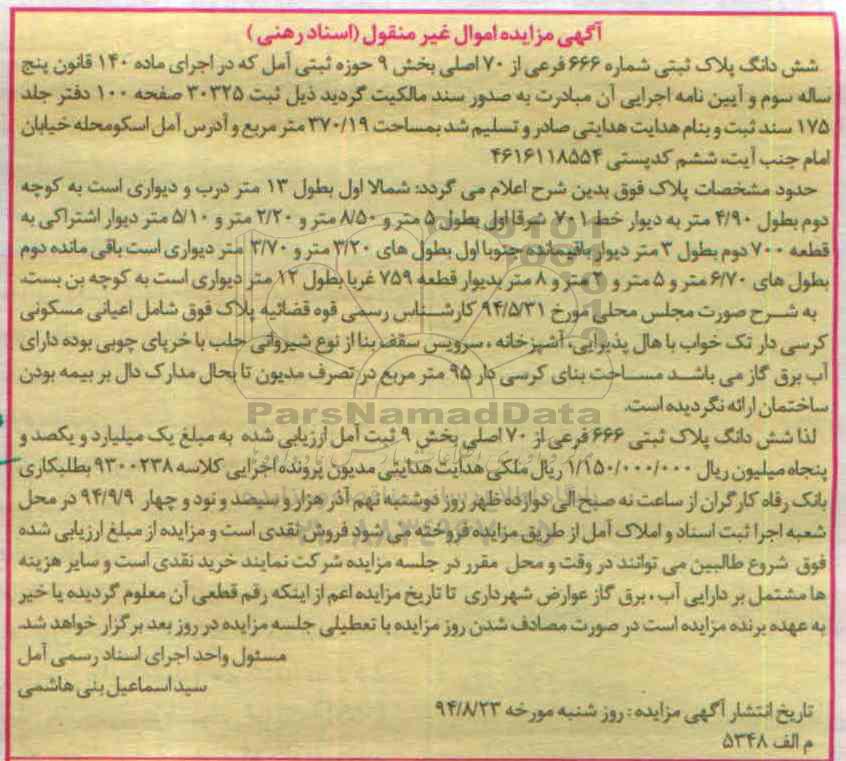 آگهی مزایده اموال غیر منقول (اسناد رهنی)
شش دانگ پلاک ثبتی شماره ۶۶۶ فرعی از ۷۰ اصلی بخش ۹ حوزه ثبتی آمل که در اجرای ماده ۱۴۰ قانون پنج
ساله سوم و آیین نامه اجرایی آن مبادرت به صدور سند مالکیت گردید ذیل ثبت ۳۰۳۲۵ صفحه ۱۰۰ دفتر جلد
۱۷۵ سند ثبت و بنام هدایت هدایتی صادر و تسلیم شد بمساحت ۳۷۰/۱۹ متر مربع و آدرس آمل اسکومحله خیابان
امام جنب آیت، ششم کدپستی ۴۶۱۶۱۱۸۵۵۴
حدود مشخصات پلاک فوق بدین شرح اعلام می گردد: شمالا اول بطول ۱۳ متر درب و دیواری است به کوچه
دوم بطول ۴/۹۰ متر به دیوار خط ۷۰۱ شرقا اول بطول ۵ متر و ۸/۵۰ متر و ۲/۲۰ متر و ۵/۱۰ متر دیوار اشتراکی به
قطعه ۷۰۰ دوم بطول ۳ متر دیوار باقیمانده جنوبا اول بطول های ۳/۲۰ متر و ۳/۷۰ متر دیواری است باقی مانده دوم
بطول های ۶/۷۰ متر و ۵ متر و ۲ متر و ۸ متر بدیوار قطعه ۷۵۹ غربا بطول ۱۲ متر دیواری است به کوچه بن بست.
به شرح صورت مجلس محلی مورخ ۹۴/۵/۳۱ کارشناس رسمی قوه قضائیه پلاک فوق شامل اعیانی مسکونی
کرسی دار تک خواب با هال پذیرایی، آشپزخانه، سرویس سقف بنا از نوع شیروانی حلب با خرپای چوبی بوده دارای
آب برق گاز می باشد مساحت بنای کرسی دار ۹۵ متر مربع در تصرف مدیون تا بحال مدارک دال بر بیمه بودن
ساختمان ارائه نگردیده است.
ParsNamadData
لذا شش دانگ پلاک ثبتی ۶۶۶ فرعی از ۷۰ اصلی بخش ۹ ثبت آمل ارزیابی شده به مبلغ یک میلیارد و یکصد و
پنجاه میلیون ریال ۱/۱۵۰/۰۰۰/۰۰۰ ریال ملکی هدایت هدایتی مدیون پرونده اجرایی کلاسه ۹۳۰۰۲۳۸ بطلبکاری
بانک رفاه کارگران از ساعت نه صبح الی دوازده ظهر روز دوشنبه نهم آذر هزار و سیصد و نود و چهار ۹۴/۹/۹ در محل
شعبه اجرا ثبت اسناد و املاک آمل از طریق مزایده فروخته می شود فروش نقدی است و مزایده از مبلغ ارزیابی شده
فوق شروع طالبین می توانند در وقت و محل مقرر در جلسه مزایده شرکت نمایند خرید نقدی است و سایر هزینه
ها مشتمل بر دارایی آب، برق گاز عوارض شهرداری تا تاریخ مزایده اعم از اینکه رقم قطعی آن معلوم گردیده یا خیر
به عهده برنده مزایده است در صورت مصادف شدن روز مزایده با تعطیلی جلسه مزایده در روز بعد برگزار خواهد شد.
مسئول واحد اجرای اسناد رسمی آمل
سید اسماعیل بنی هاشمی
تاریخ انتشار آگهی مزایده: روز شنبه مورخه ۹۴/۸/۲۳
م الف ۵۳۴۸